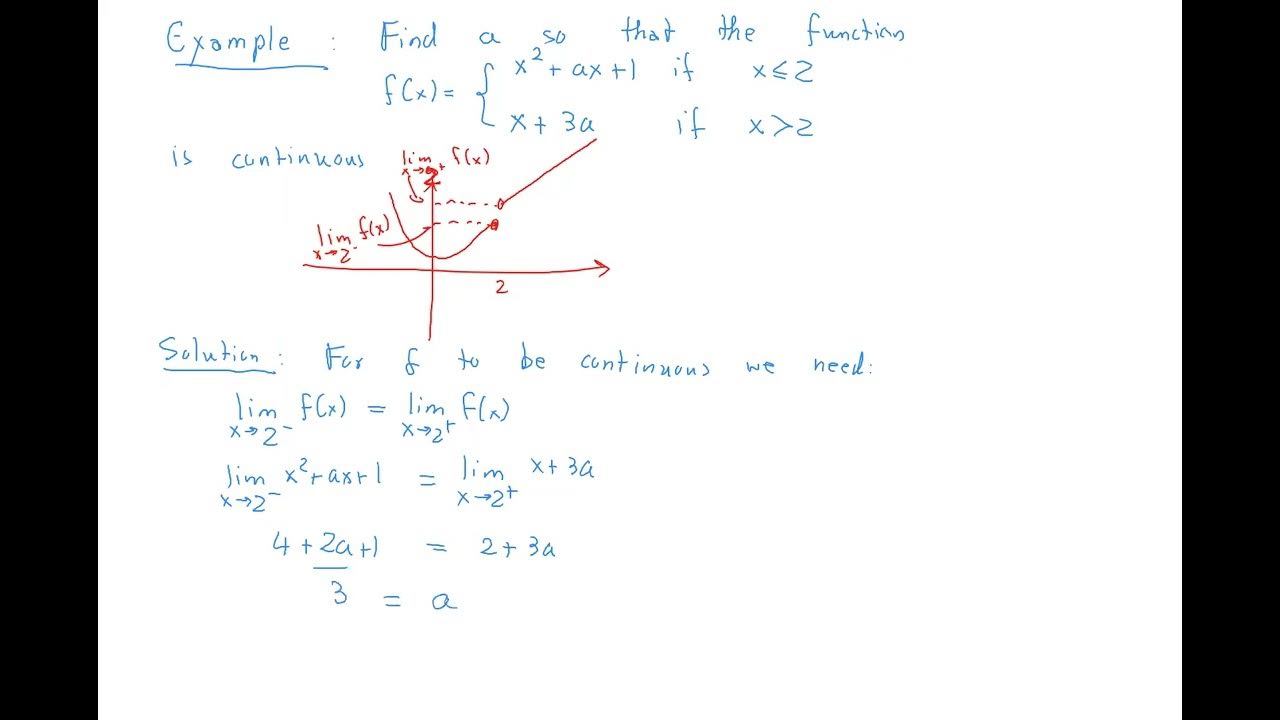 Example : Find a so that the function
f(x) = { x² + ax + 1 if x ≤ 2
x + 3a if x > 2
is continuous
lim f(x)
x→2⁺
lim f(x)
x→2⁻
2
Solution : For f to be continuous we need:
lim x→2⁻ f(x) = lim x→2⁺ f(x)
lim x→2⁻ x² + ax + 1 = lim x→2⁺ x + 3a
4 + 2a + 1 = 2 + 3a
3 = a